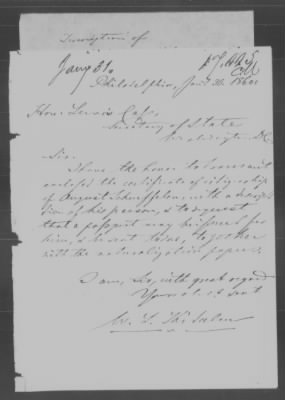 Description of
Jany 31.
Philadelphia, Jany 30. 1860
Hon. Lewis Cass,
Secretary of State
Washington D.C.
Sir.
I have the honor to transmit
enclosed the certificate of citizenship
of August with a descrip
tion of his person, & to request
that a passport may be issued for
him, & sent to me, together
with the naturalization papers.
I am, Sir, with great regard
Your ob. servt